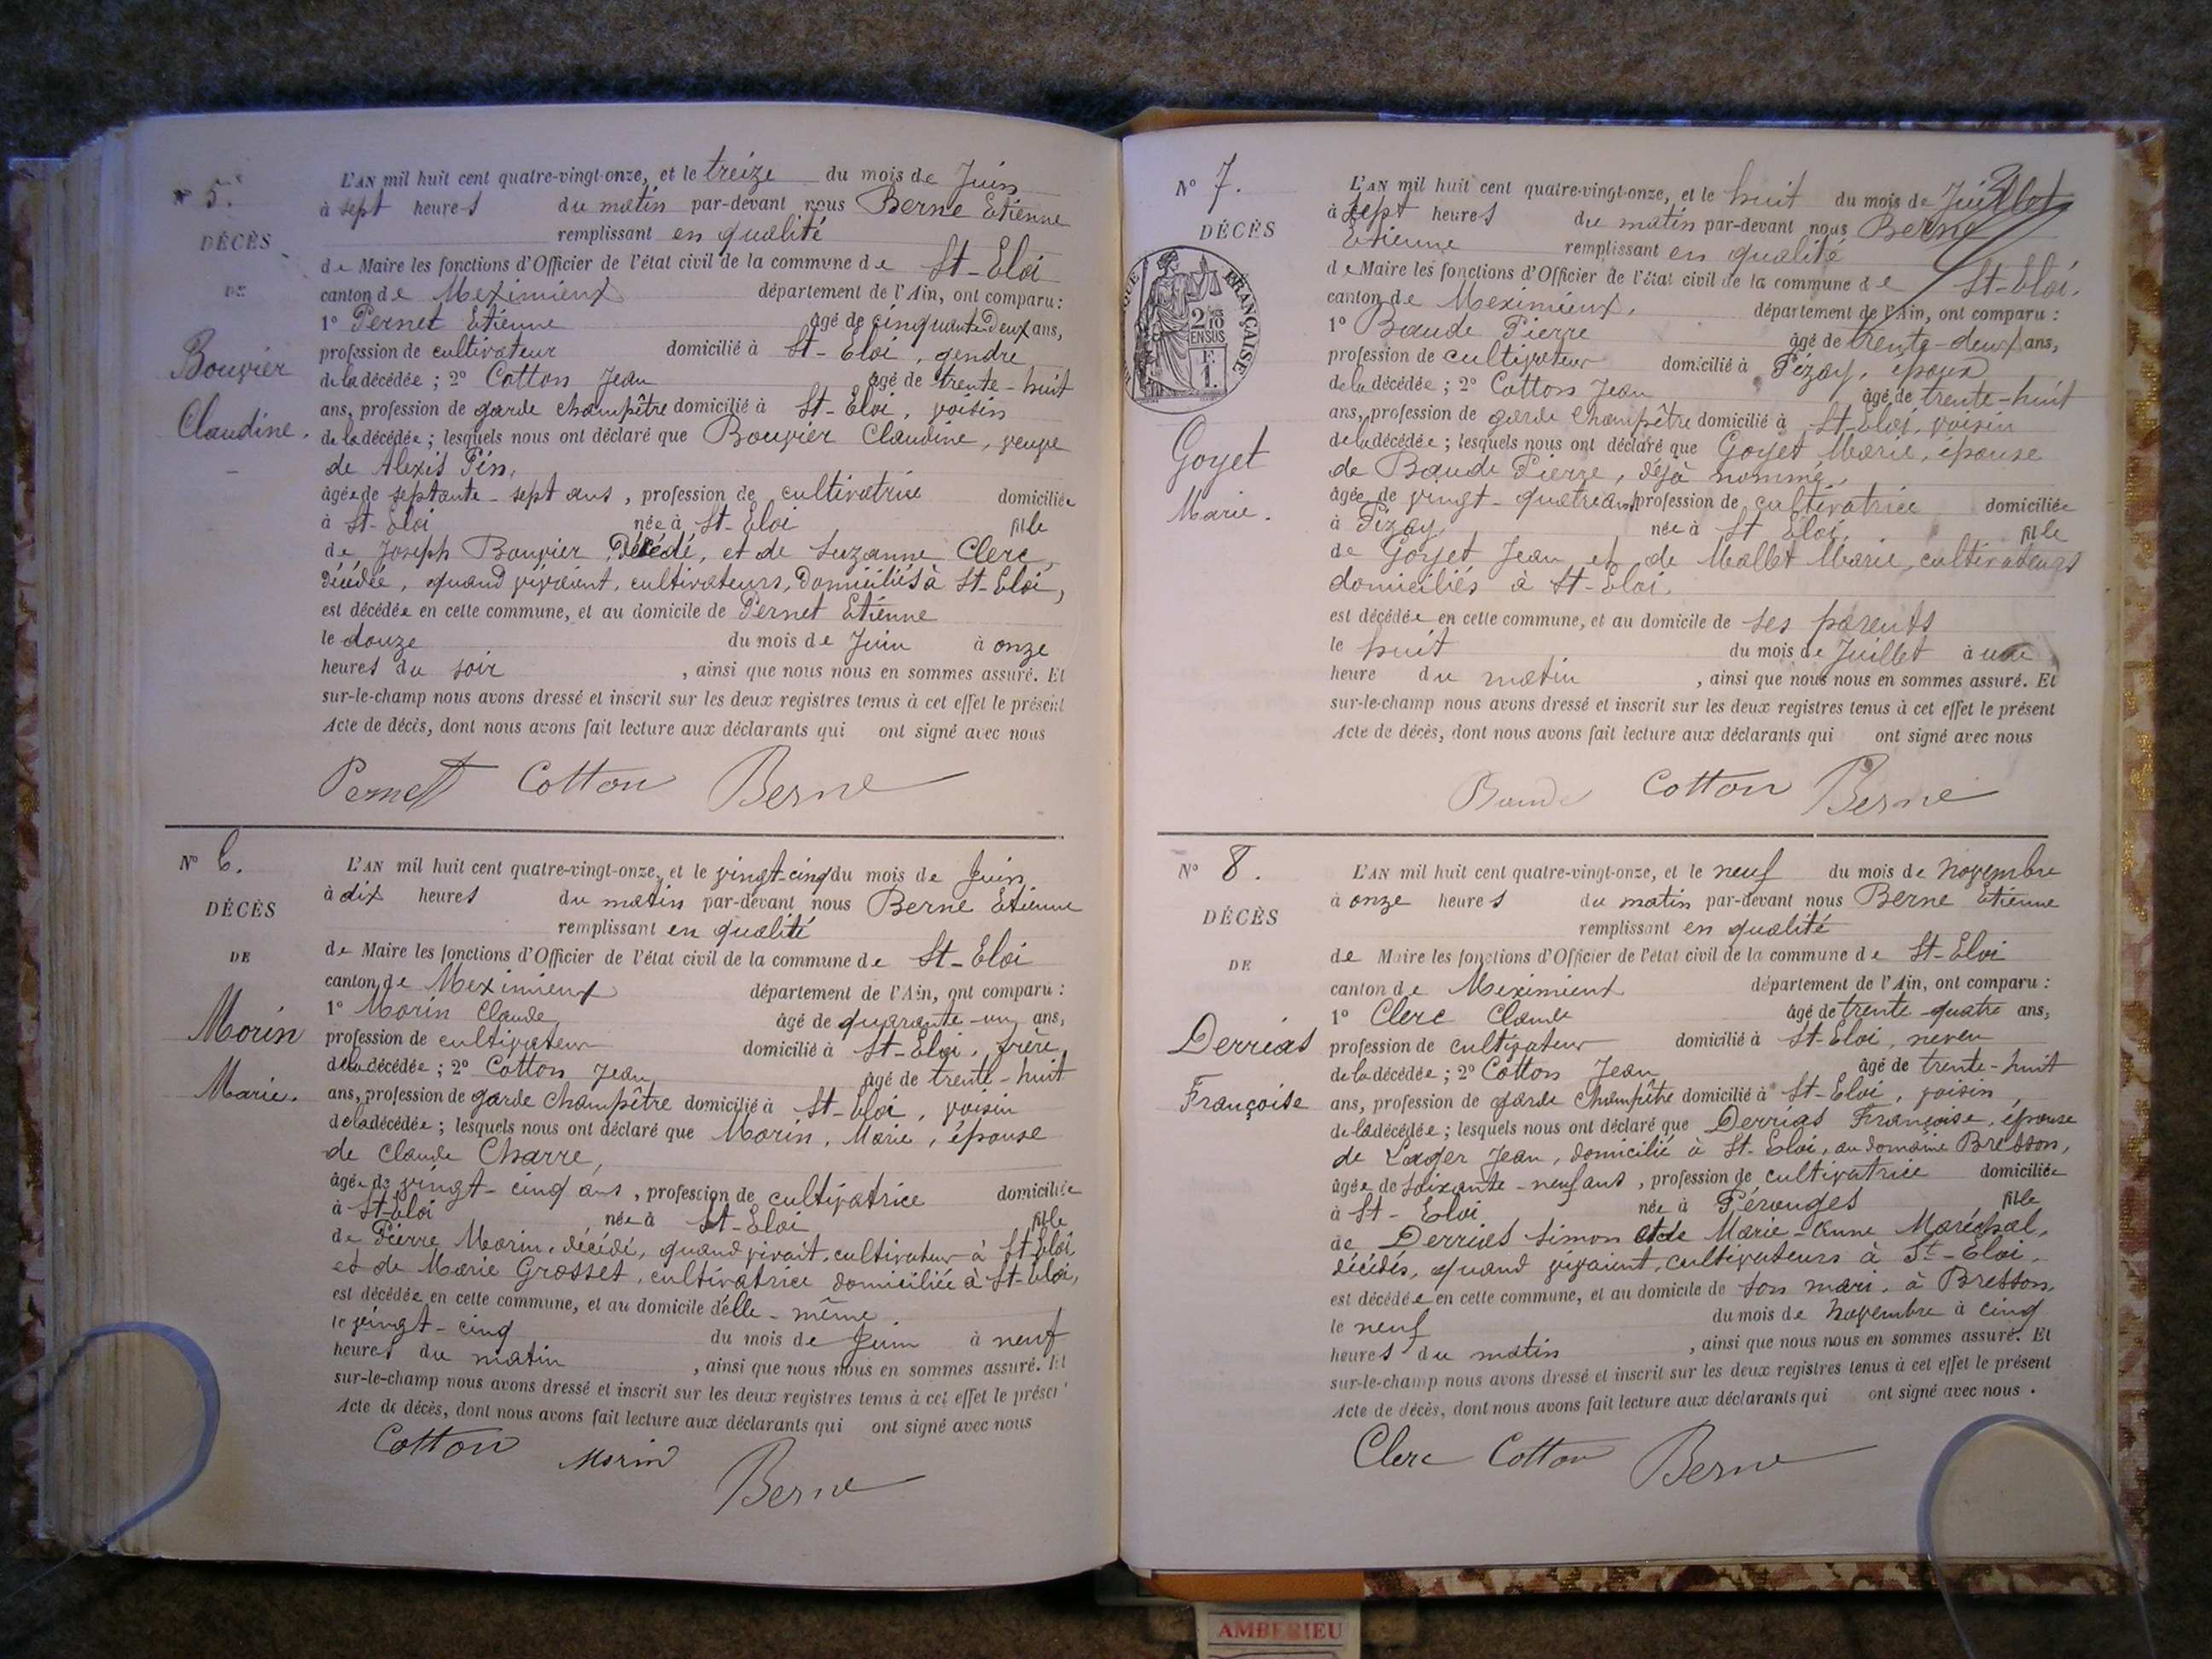 N° 5.
DÉCÈS
DE
Bouvier
Claudine.
L'AN mil huit cent quatre-vingt-onze, et le treize du mois de Juin
à sept heures du matin par-devant nous Berne Etienne
remplissant en qualité
de Maire les fonctions d'Officier de l'état civil de la commune de St-Eloi
canton de Meximieux département de l'Ain, ont comparu :
1° Pernet Etienne âgé de cinquante-Deux ans,
profession de cultivateur domicilié à St-Eloi, gendre
de la décédée ; 2° Cotton Jean âgé de trente-huit
ans, profession de garde champêtre domicilié à St-Eloi, voisin
de la décédée ; lesquels nous ont déclaré que Bouvier Claudine, veuve
de Alexis Pin,
âgée de septante-sept ans, profession de cultivatrice domiciliée
à St-Eloi née à St-Eloi fille
de Joseph Bouvier Décédé, et de Suzanne Clerc,
décédée, quand vivaient, cultivateurs, Domiciliés à St-Eloi,
est décédée en cette commune, et au domicile de Pernet Etienne
le douze du mois de Juin à onze
heures du soir, ainsi que nous nous en sommes assuré. Et
sur-le-champ nous avons dressé et inscrit sur les deux registres tenus à cet effet le présent
Acte de décès, dont nous avons fait lecture aux déclarants qui ont signé avec nous
Pernet Cotton Berne
N° 6.
DÉCÈS
DE
Morin
Marie.
L'AN mil huit cent quatre-vingt-onze, et le vingt-cinq du mois de Juin
à dix heures du matin par-devant nous Berne Etienne
remplissant en qualité
de Maire les fonctions d'Officier de l'état civil de la commune de St-Eloi
canton de Meximieux département de l'Ain, ont comparu :
1° Morin Claude âgé de quarante-un ans,
profession de cultivateur domicilié à St-Eloi, frère
de la décédée ; 2° Cotton Jean âgé de trente-huit
ans, profession de garde Champêtre domicilié à St-Eloi, voisin
de la décédée ; lesquels nous ont déclaré que Morin, Marie, épouse
de Claude Charre,
âgée de vingt-cinq ans, profession de cultivatrice domiciliée
à St-Eloi née à St-Eloi fille
de Pierre Morin, décédé, quand vivait, cultivateur à St-Eloi,
et de Marie Grosset, cultivatrice domiciliée à St-Eloi,
est décédée en cette commune, et au domicile d'elle-même
le vingt-cinq du mois de Juin à neuf
heures du matin, ainsi que nous nous en sommes assuré. Et
sur-le-champ nous avons dressé et inscrit sur les deux registres tenus à cet effet le présent
Acte de décès, dont nous avons fait lecture aux déclarants qui ont signé avec nous
Cotton Morin Berne
N° 7.
DÉCÈS
FRANÇAISE
2/10
EN SUS
F.
1.
Goyet
Marie.
L'AN mil huit cent quatre-vingt-onze, et le huit du mois de Juillet
à sept heures du matin par-devant nous Berne
Etienne remplissant en qualité
de Maire les fonctions d'Officier de l'état civil de la commune de St-Eloi.
canton de Meximieux. département de l'Ain, ont comparu :
1° Baude Pierre âgé de trente-deux ans,
profession de cultivateur domicilié à Pizay, époux
de la décédée ; 2° Cotton Jean âgé de trente-huit
ans, profession de garde Champêtre domicilié à St-Eloi, voisin
de la décédée ; lesquels nous ont déclaré que Goyet Marie, épouse
de Baude Pierre, déjà nommé,
âgée de vingt-quatre ans, profession de cultivatrice domiciliée
à Pizay née à St Eloi, fille
de Goyet Jean et de Mallet Marie, cultivateurs
domiciliés à St-Eloi.
est décédée en cette commune, et au domicile de ses parents
le huit du mois de Juillet à une
heure du matin, ainsi que nous nous en sommes assuré. Et
sur-le-champ nous avons dressé et inscrit sur les deux registres tenus à cet effet le présent
Acte de décès, dont nous avons fait lecture aux déclarants qui ont signé avec nous
Baude Cotton Berne
N° 8.
DÉCÈS
DE
Derrias
Françoise
L'AN mil huit cent quatre-vingt-onze, et le neuf du mois de Novembre
à onze heures du matin par-devant nous Berne Etienne
remplissant en qualité
de Maire les fonctions d'Officier de l'état civil de la commune de St-Eloi
canton de Meximieux département de l'Ain, ont comparu :
1° Clerc Claude âgé de trente-quatre ans,
profession de cultivateur domicilié à St-Eloi, neveu
de la décédée ; 2° Cotton Jean âgé de trente-huit
ans, profession de garde Champêtre domicilié à St-Eloi, voisin,
de la décédée ; lesquels nous ont déclaré que Derrias Françoise, épouse
de Lager Jean, domicilié à St-Eloi, au domaine Bresson,
âgée de soixante-neuf ans, profession de cultivatrice domiciliée
à St-Eloi née à Pérouges fille
de Derrias Simon et de Marie-Anne Maréchal,
décédés, quand vivaient, cultivateurs à St-Eloi,
est décédée en cette commune, et au domicile de son mari, à Bresson,
le neuf du mois de Novembre à cinq
heures du matin, ainsi que nous nous en sommes assuré. Et
sur-le-champ nous avons dressé et inscrit sur les deux registres tenus à cet effet le présent
Acte de décès, dont nous avons fait lecture aux déclarants qui ont signé avec nous.
Clerc Cotton Berne
AMBERIEU